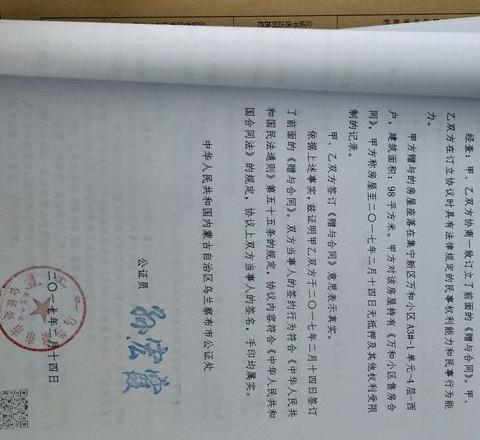 经查：甲、乙双方协商一致订立了前面的《赠与合同》。甲、
乙双方在订立协议时具有法律规定的民事权利能力和民事行为能
力。
甲方赠与的房屋座落在集宁新区万和小区 A3#-1 单元-4 层-西
户，建筑面积：98 平方米。甲方对该房屋持有《万和小区售房合
同》，甲方称房屋至二〇一七年二月十四日无抵押及其他权利受限
制的记录。
甲、乙双方签订《赠与合同》意思表示真实。
依据上述事实，兹证明甲乙双方于二〇一七年二月十四日签订
了前面的《赠与合同》。双方当事人的签约行为符合《中华人民共
和国民法通则》第五十五条的规定，协议内容符合《中华人民共和
国合同法》的规定，协议上双方当事人的签名，手印均属实。
中华人民共和国内蒙古自治区乌兰察布市公证处
公证员
二〇一七年二月十四日